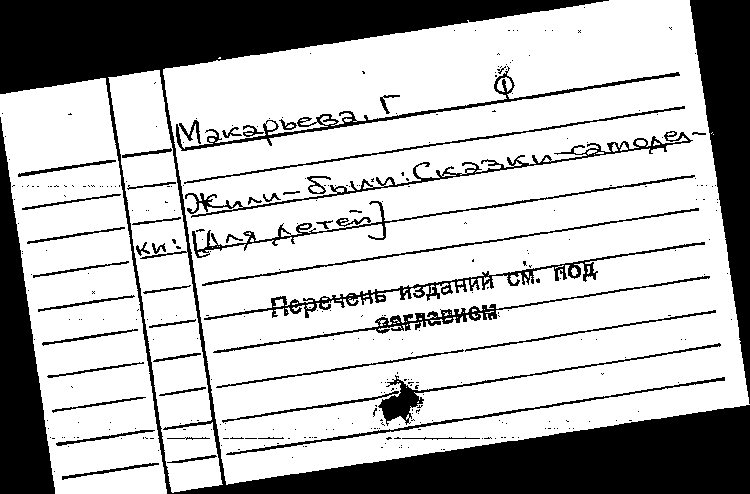 Ф
Макарьева, Г
Жили-были: Сказки-самодел-
ки: [Для детей]
Перечень изданий см. под
заглавием